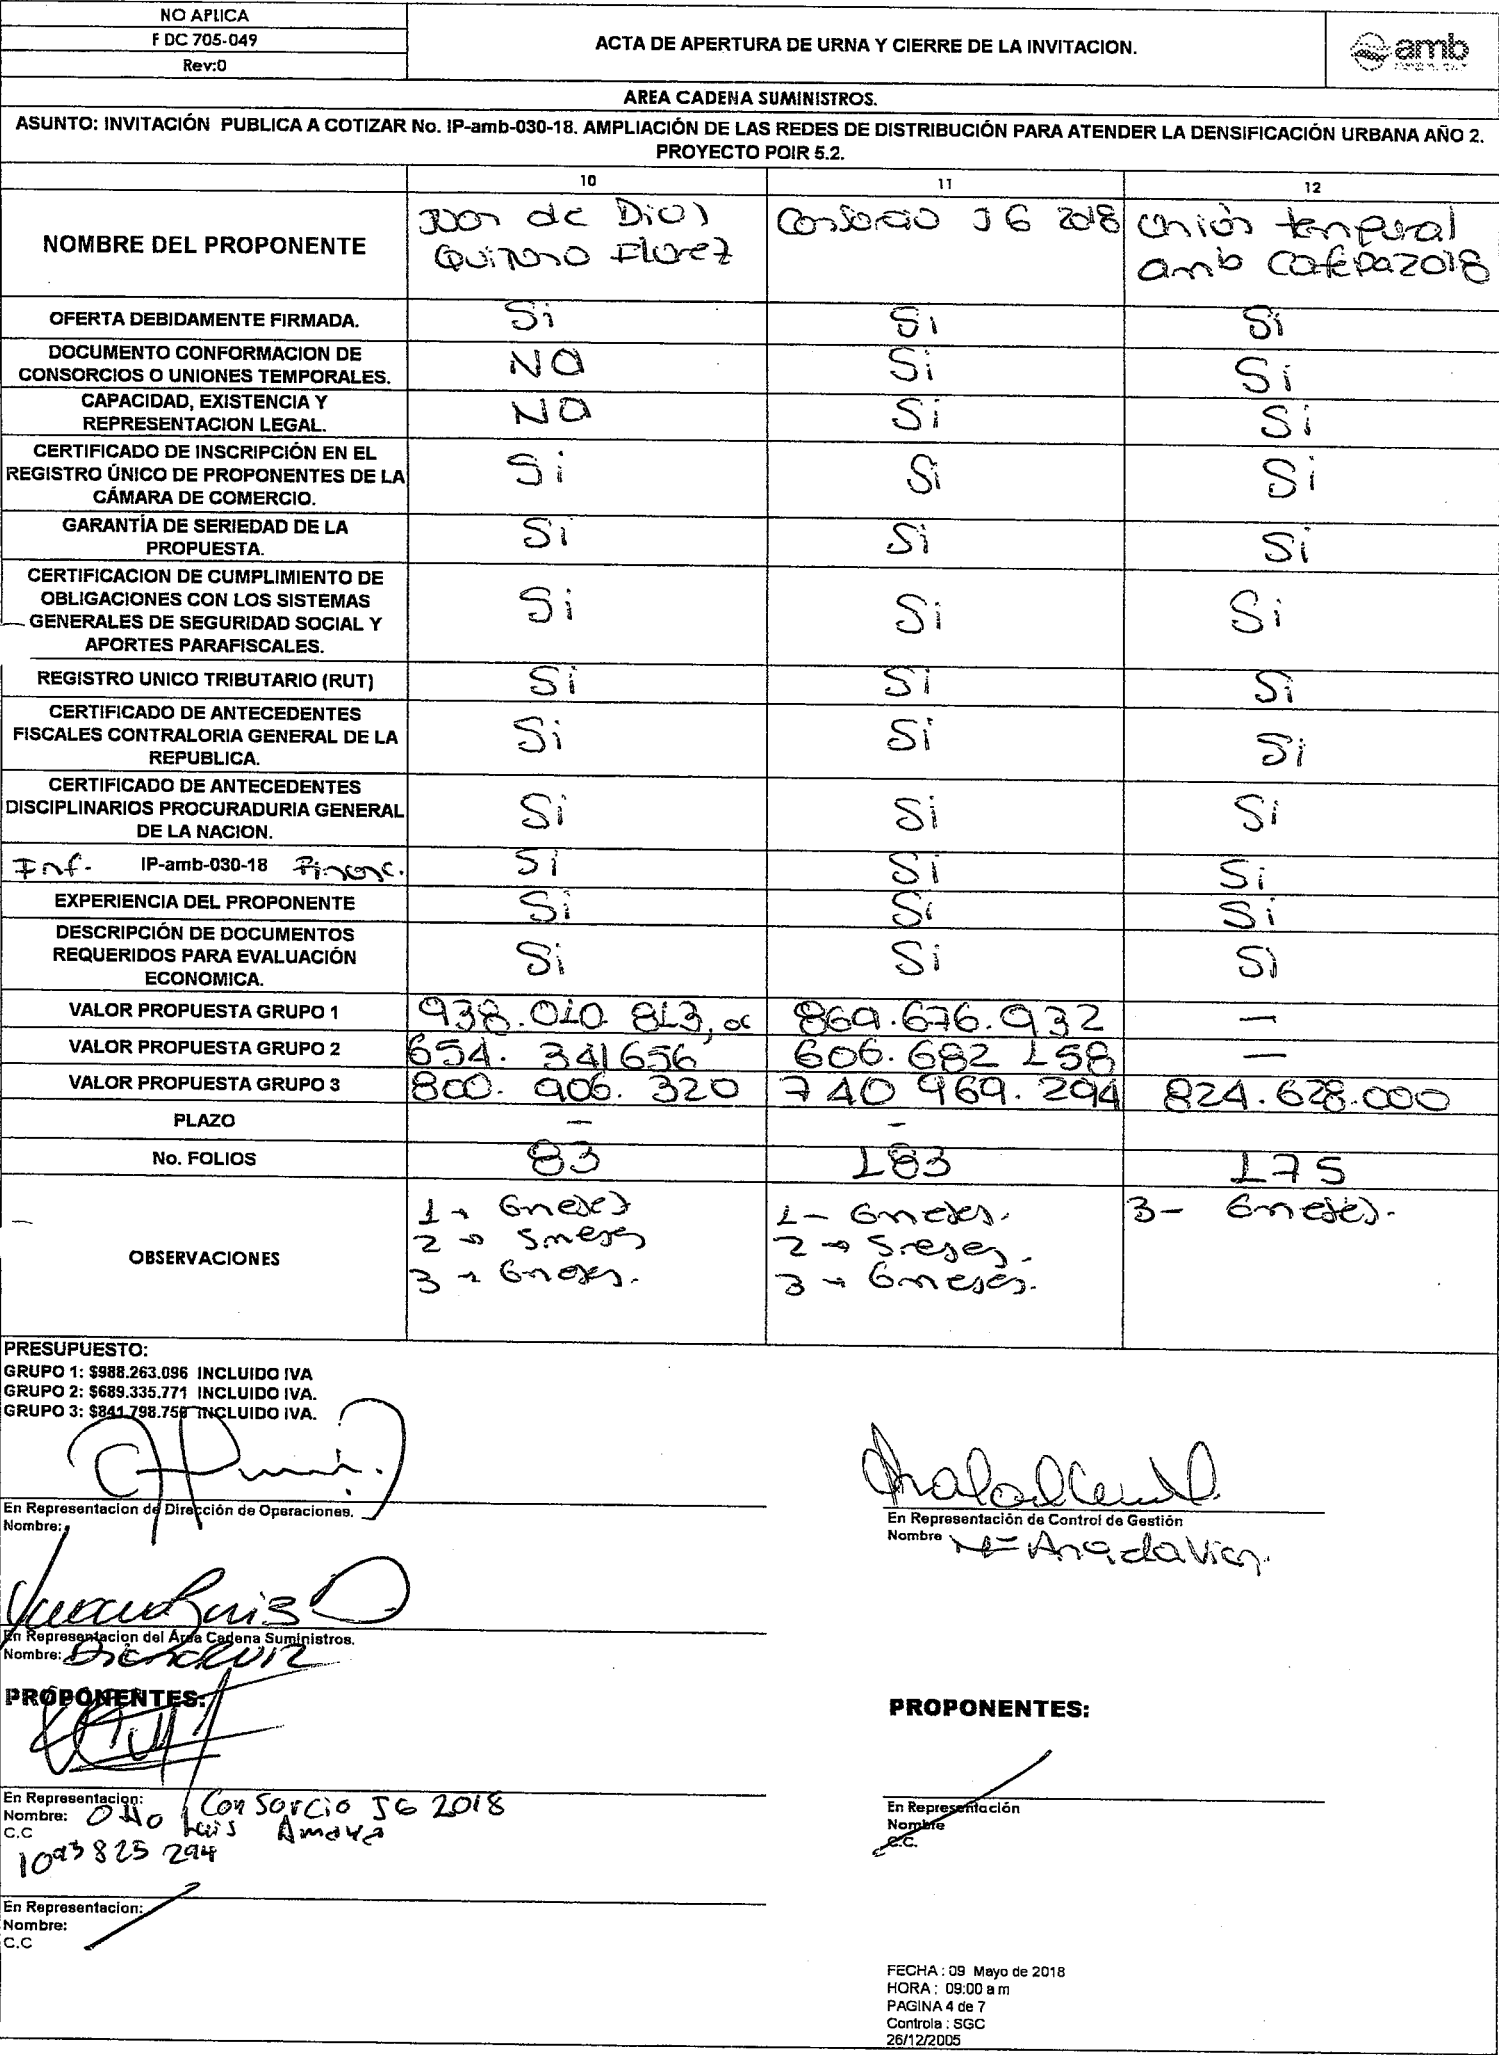 NO APLICA
F DC 705-049
Rev:0
ACTA DE APERTURA DE URNA Y CIERRE DE LA INVITACION.
amb
AREA CADENA SUMINISTROS.
ASUNTO: INVITACIÓN PUBLICA A COTIZAR No. IP-amb-030-18. AMPLIACIÓN DE LAS REDES DE DISTRIBUCIÓN PARA ATENDER LA DENSIFICACIÓN URBANA AÑO 2.
PROYECTO POIR 5.2.
10 11 12
NOMBRE DEL PROPONENTE
Juan de Dios
Quintero Florez
Consorcio JG 2018
Unión temporal
amb Cafepa2018
OFERTA DEBIDAMENTE FIRMADA. Si Si Si
DOCUMENTO CONFORMACION DE
CONSORCIOS O UNIONES TEMPORALES. NO Si Si
CAPACIDAD, EXISTENCIA Y
REPRESENTACION LEGAL. NO Si Si
CERTIFICADO DE INSCRIPCIÓN EN EL
REGISTRO ÚNICO DE PROPONENTES DE LA
CÁMARA DE COMERCIO. Si Si Si
GARANTÍA DE SERIEDAD DE LA
PROPUESTA. Si Si Si
CERTIFICACION DE CUMPLIMIENTO DE
OBLIGACIONES CON LOS SISTEMAS
GENERALES DE SEGURIDAD SOCIAL Y
APORTES PARAFISCALES. Si Si Si
REGISTRO UNICO TRIBUTARIO (RUT) Si Si Si
CERTIFICADO DE ANTECEDENTES
FISCALES CONTRALORIA GENERAL DE LA
REPUBLICA. Si Si Si
CERTIFICADO DE ANTECEDENTES
DISCIPLINARIOS PROCURADURIA GENERAL
DE LA NACION. Si Si Si
Inf. IP-amb-030-18 Financ. Si Si Si
EXPERIENCIA DEL PROPONENTE Si Si Si
DESCRIPCIÓN DE DOCUMENTOS
REQUERIDOS PARA EVALUACIÓN
ECONOMICA. Si Si Si
VALOR PROPUESTA GRUPO 1 938.010 813, 869.676.932 —
VALOR PROPUESTA GRUPO 2 654. 341656 606.682 158 —
VALOR PROPUESTA GRUPO 3 800. 906. 320 740 969. 294 824.628.000
PLAZO — -
No. FOLIOS 83 183 175
OBSERVACIONES
1 → 6meses
2 → 5meses
3 → 6meses.
1- 6meses.
2 → 5meses.
3 → 6meses.
3- 6meses.
PRESUPUESTO:
GRUPO 1: $988.263.096 INCLUIDO IVA
GRUPO 2: $689.335.771 INCLUIDO IVA.
GRUPO 3: $841.798.75 INCLUIDO IVA.
En Representacion de Dirección de Operaciones.
Nombre:
En Representación de Control de Gestión
Nombre
En Representacion del Área Cadena Suministros.
Nombre: Ruiz
PROPONENTES:
PROPONENTES:
En Representacion: Consorcio JG 2018
Nombre: Otto Luis Amaya
C.C
1093 825 294
En Representación
Nombre
C.C.
En Representacion:
Nombre:
C.C
FECHA : 09 Mayo de 2018
HORA : 09:00 a m
PAGINA 4 de 7
Controla : SGC
26/12/2005